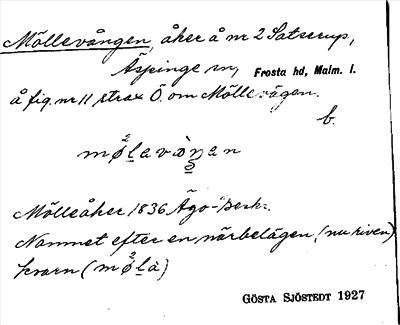 Möllevången, åker å nr 2 Satserup,
Äspinge sn, Frosta hd, Malm. l.
å fig. nr 11 strax Ö. om Möllevägen.
b.
mø̂lavàŋan
Mölleåker 1836 Ägo-Besk:
Namnet efter en närbelägen, (nu riven)
kvarn (mø̂là)
GÖSTA SJÖSTEDT 1927